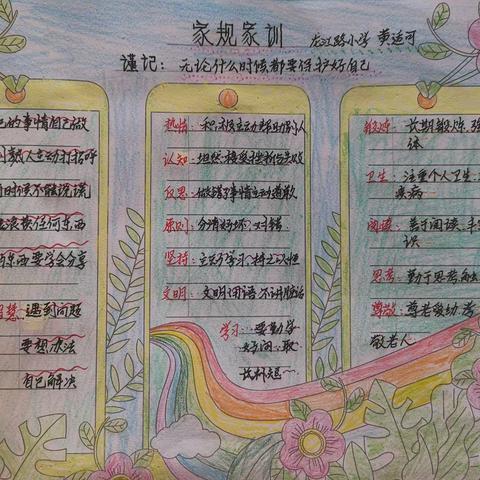 家规家训
龙江路小学 黄适可
谨记：无论什么时候都要保护好自己
己的事情自己做
到熟人主动打招呼
何时候不能说谎
任何东西
东西要学会分享
智慧：遇到问题
要想办法
自己解决
热情：积极主动帮助别人
认知：坦然接受挫折与失败
反思：做错了事情主动道歉
原则：分清好坏、对错
坚持：立志学习、持之以恒
文明：文明用语 不讲脏话
学习：要勤学
好问、取
长补短～
锻炼：长期锻炼、强
体
卫生：注重个人卫生、
疾病
阅读：善于阅读、丰
识
思考：勤于思考、
尊敬：尊老爱幼、孝
敬老人